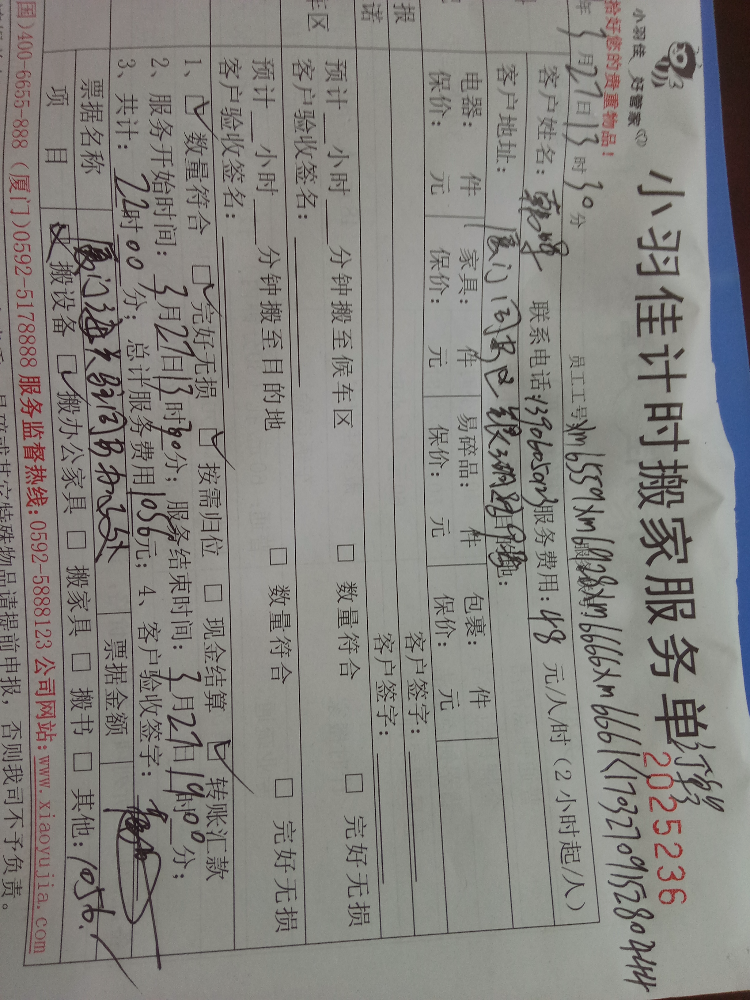 小羽佳 好管家
小羽佳计时搬家服务单
2025236
拾好您的贵重物品！
员工工号
年3月27日13时30分
客户姓名： 联系电话：服务费用：48 元/人/时（2小时起/人）
客户地址：厦门同安区
电器： 件 家具： 件 易碎品： 件 包裹： 件 客户签字：
保价： 元 保价： 元 保价： 元 保价： 元
客户签字：
报
诺
预计 小时 分钟搬至候车区 □ 数量符合 □ 完好无损
车区
客户验收签名：
预计 小时 分钟搬至目的地 □ 数量符合 □ 完好无损
客户验收签名：
1、☑ 数量符合 ☑ 完好无损 ☑ 按需归位 □ 现金结算 ☑ 转账汇款
2、服务开始时间：3月27日13时30分；服务结束时间：3月27日19时00分；
3、共计：22时00分；总计服务费用1056元；4、客户验收签字：
票据名称 票据金额 1056.
项 目 ☑ 搬设备 ☑ 搬办公家具 □ 搬家具 □ 搬书 □ 其他：
国)400-6655-888（厦门)0592-5178888 服务监督热线：0592-5888123 公司网站：www.xiaoyujia.com
特殊物品请提前申报，否则我司不予负责。